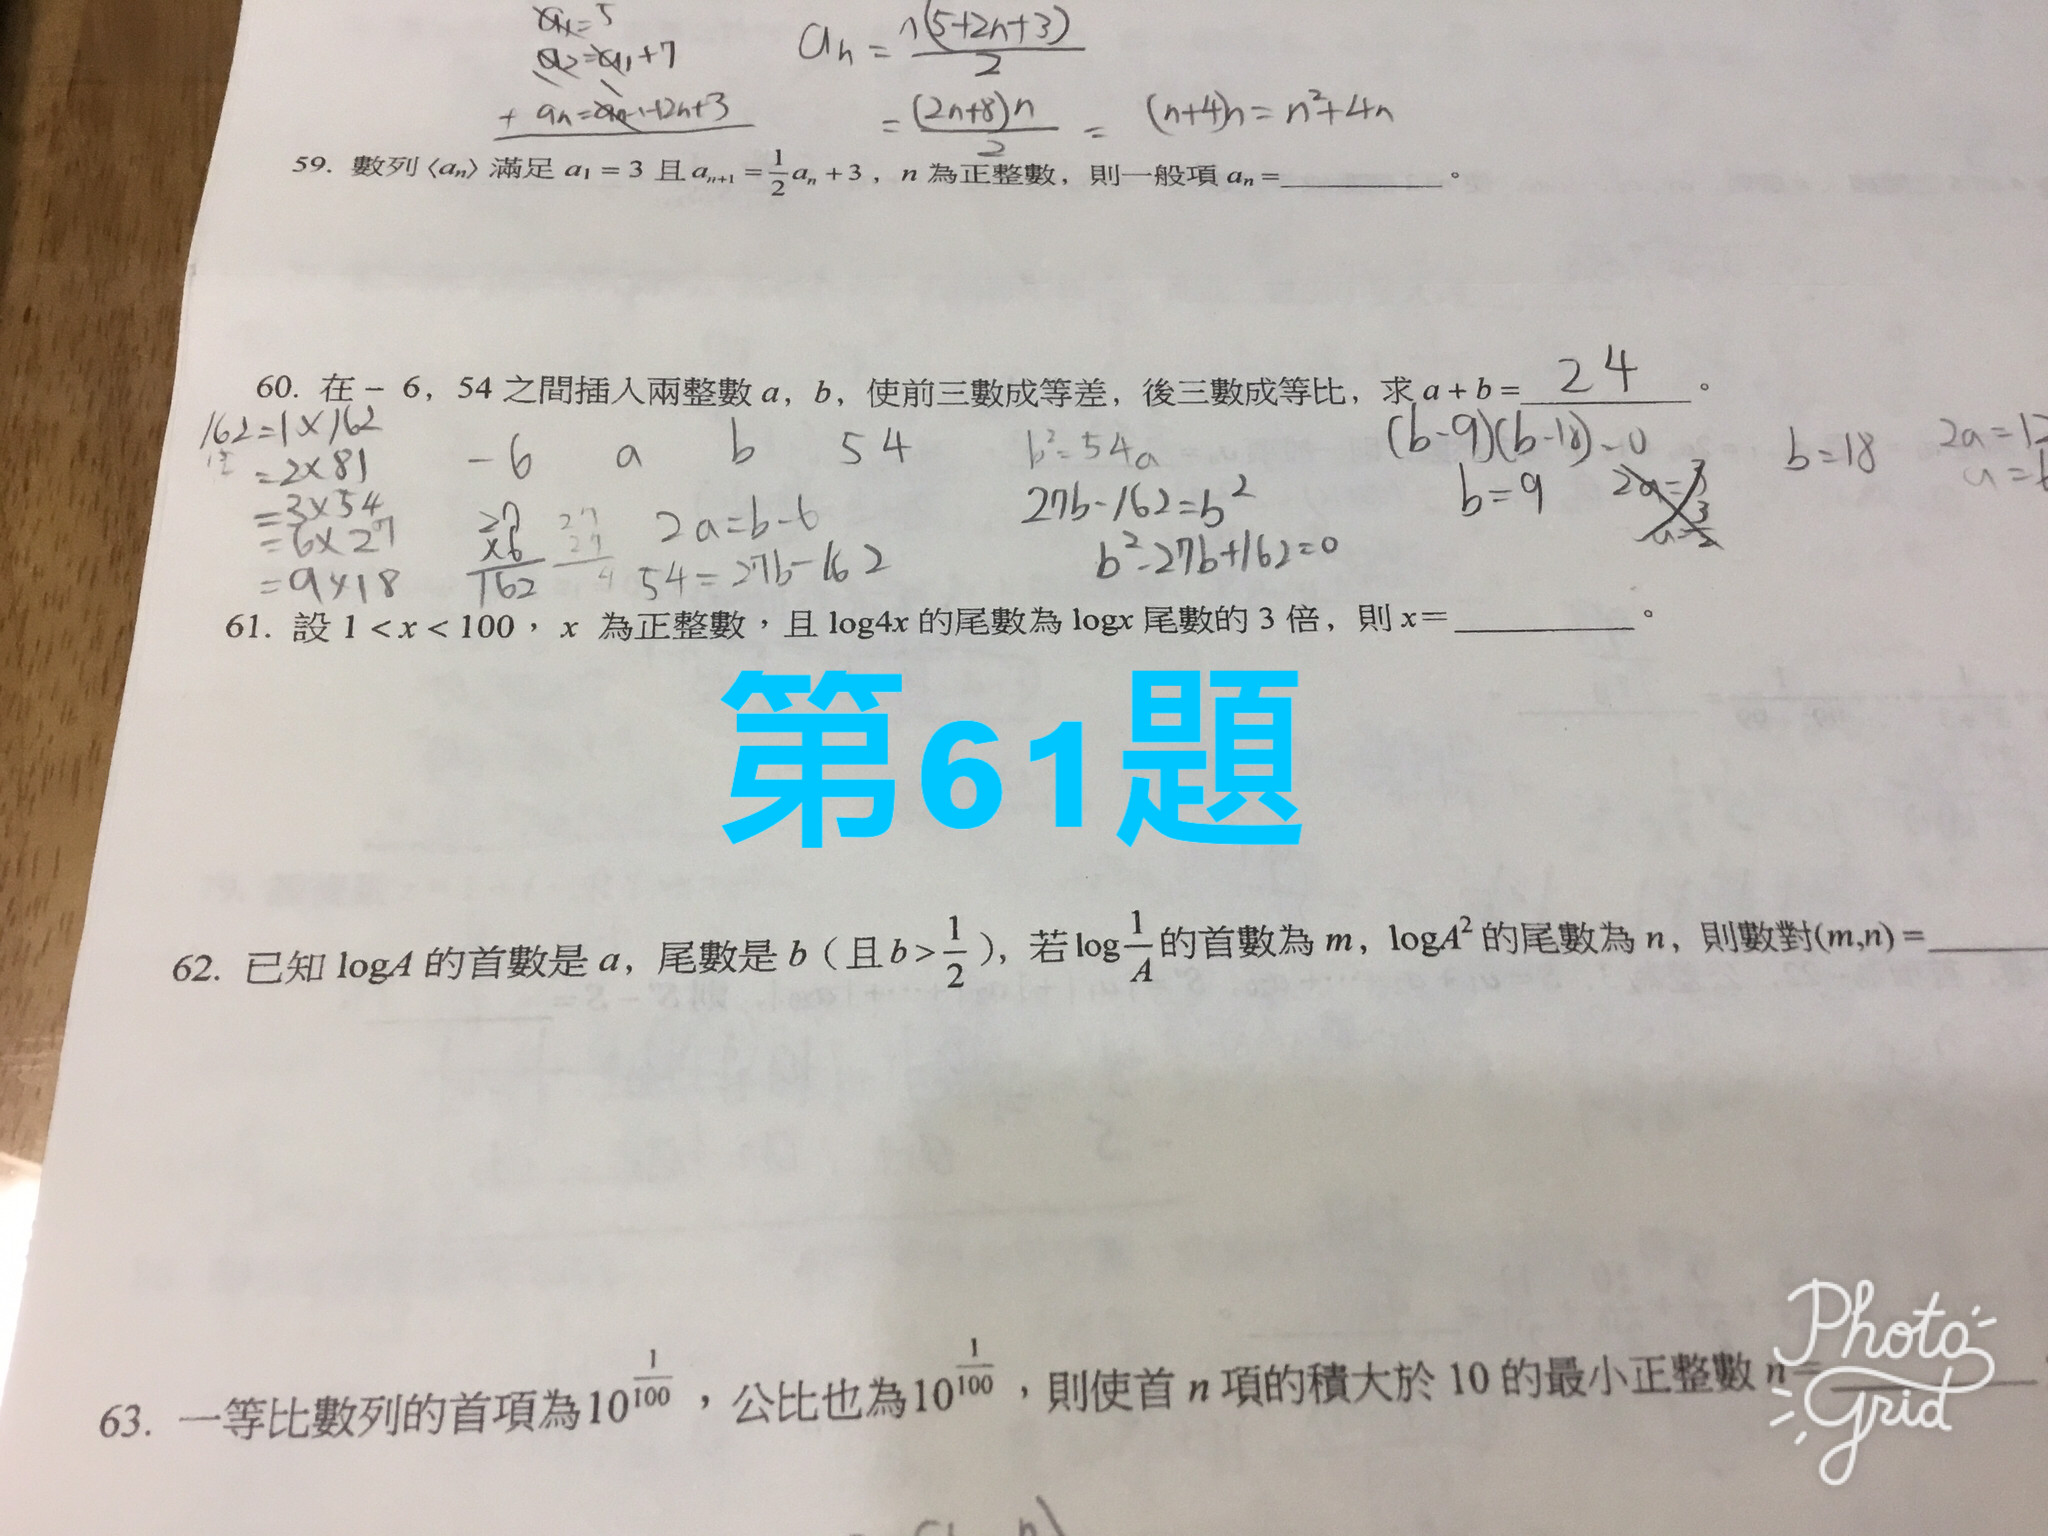 a₁=5
a₂=a₁+7
+ aₙ=aₙ₋₁+2n+3
aₙ = n(5+2n+3)/2
= (2n+8)n/2 = (n+4)n = n²+4n
59. 數列⟨aₙ⟩滿足 a₁ = 3 且 aₙ₊₁ = 1/2 aₙ + 3，n 為正整數，則一般項 aₙ =__________。
60. 在 – 6，54 之間插入兩整數 a，b，使前三數成等差，後三數成等比，求 a + b = 24。
162=1×162
=2×81
=3×54
=6×27
=9×18
-6 a b 54
27
×6
162
27
2a=b-6
54=27b-162
b²=54a
27b-162=b²
b²-27b+162=0
(b-9)(b-18)=0
b=9
2a=3
b=18
2a=12
61. 設 1 < x < 100，x 為正整數，且 log4x 的尾數為 logx 尾數的 3 倍，則 x=__________。
第61題
62. 已知 logA 的首數是 a，尾數是 b（且 b > 1/2），若 log 1/A 的首數為 m，logA² 的尾數為 n，則數對(m,n) =______
63. 一等比數列的首項為10^(1/100)，公比也為10^(1/100)，則使首 n 項的積大於 10 的最小正整數 n=__________
Photo
Grid